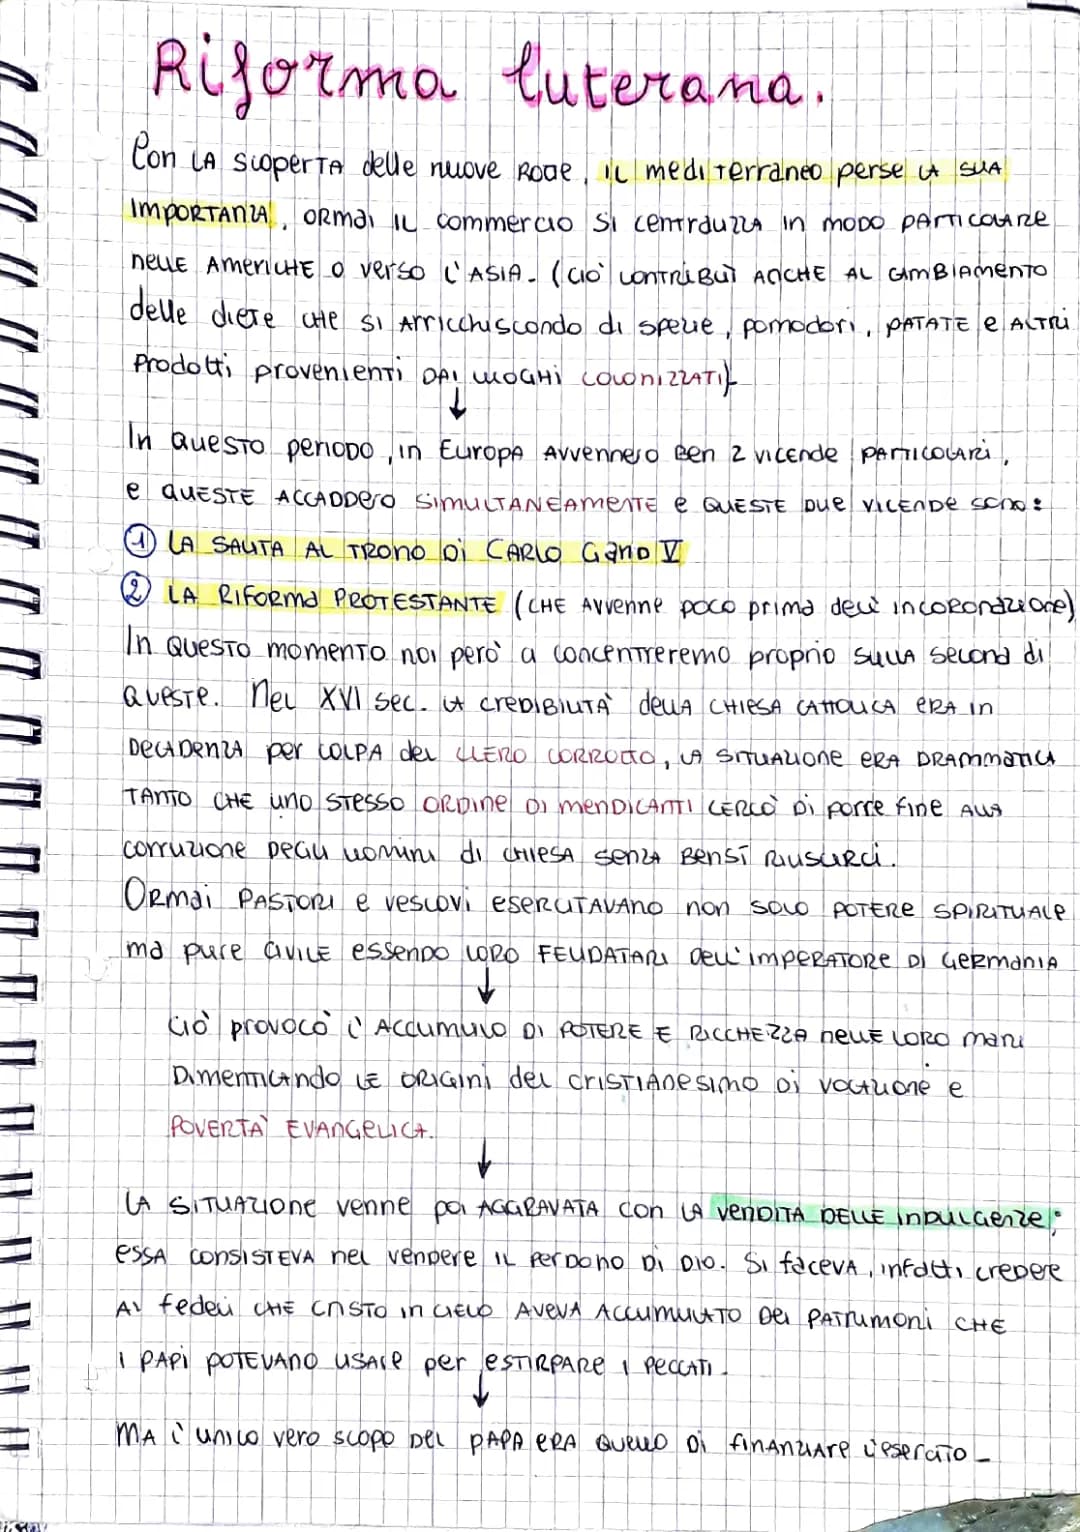 Riforma luterana.
Con LA scoperTA delle nuove ROTTE, IL mediTerraneo perse LA SUA
IMPORTANZA, ORMai IL commercio Si centralizza in modo PARTICOLARE
nelle AmeriCHE o verso L'ASIA. (Ciò contribuì ANCHE AL CAMBIAMENTO
delle diete che si ARRicchiscondo di spezie, pomodori, PATATE e ALTRI
Prodotti provenienti DAI LUOGHI COLONIZZATI)
↓
In QUESTO PERIODO, in EUROPA AVVENNERO BEN 2 VICENDE PARTICOLARI,
e QUESTE ACCADDERO SIMULTANEAMENTE e QUESTE DUE VICENDE sono:
① LA SALITA AL TRONO Di CARLO Gano V
② LA RIFORMA PROTESTANTE (CHE AVVENNE poco prima dell'incoronazione)
In QUESTO momento noi però ci concentreremo proprio SULLA second di
QUESTE. Nel XVI sec. LA CREDIBILITÀ dellA CHIESA CATTOLICA ERA in
DECADENZA per COLPA del CLERO CORROTTO, LA SITUAZIONE ERA DRAMMATICA
TANTO CHE uno STESSO ORDINE DI MENDICANTI CERCÒ Di porre fine ALLA
corruzione DEGLI uomini di CHIESA senza BENSÌ RIUSCIRCI.
ORMai PASTORI e vescovi esercitavano non SOLO POTERE SPIRITUALE
ma pure CIVILE essendo LORO FEUDATARI DELL'IMPERATORE DI GERMANIA
↓
Ciò provocò L'ACCUMULO DI POTERE E RICCHEZZA nelle LORO mani
DimenticAndo LE ORIGINI del CRISTIANESIMO Di VOCAZIONE e
POVERTÀ EVANGELICA.
↓
LA SITUAZIONE venne poi AGGRAVATA con LA VENDITA DELLE INDULGENZE;
ESSA CONSISTEVA nel vendere IL PERDONO DI DIO. Si faceva, infatti credere
AI fedeli CHE CRISTO in CIELO AVEVA ACCUMULATO DEI PATRIMONI CHE
I PAPI POTEVANO USARE per ESTIRPARE I PECCATI.
↓
MA L'UNICO vero SCOPO DEL PAPA ERA QUELLO Di FINANZIARE L'esercito_